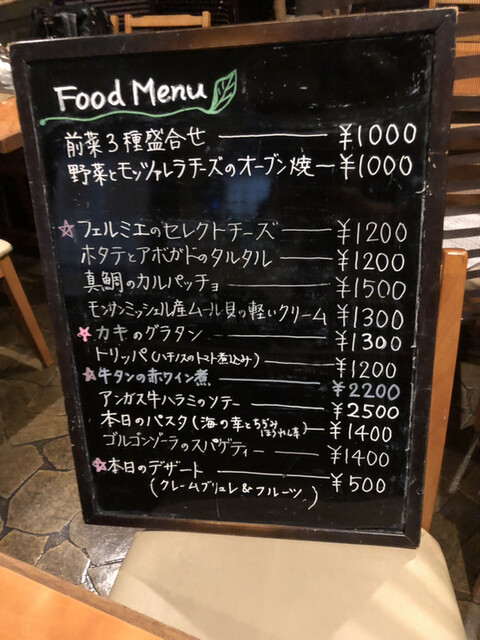 Food Menu
前菜3種盛合せ ¥1000
野菜とモッツァレラチーズのオーブン焼 ¥1000
☆フェルミエのセレクトチーズ ¥1200
ホタテとアボガドのタルタル ¥1200
真鯛のカルパッチョ ¥1500
モンサンミッシェル産ムール貝の軽いクリーム ¥1300
☆カキのグラタン ¥1300
トリッパ(ハチノスのトマト煮込み) ¥1200
☆牛タンの赤ワイン煮 ¥2200
アンガス牛ハラミのソテー ¥2500
本日のパスタ(海の幸とちぢみほうれん草) ¥1400
ゴルゴンゾーラのスパゲティー ¥1400
☆本日のデザート ¥500
(クレームブリュレ&フルーツ)